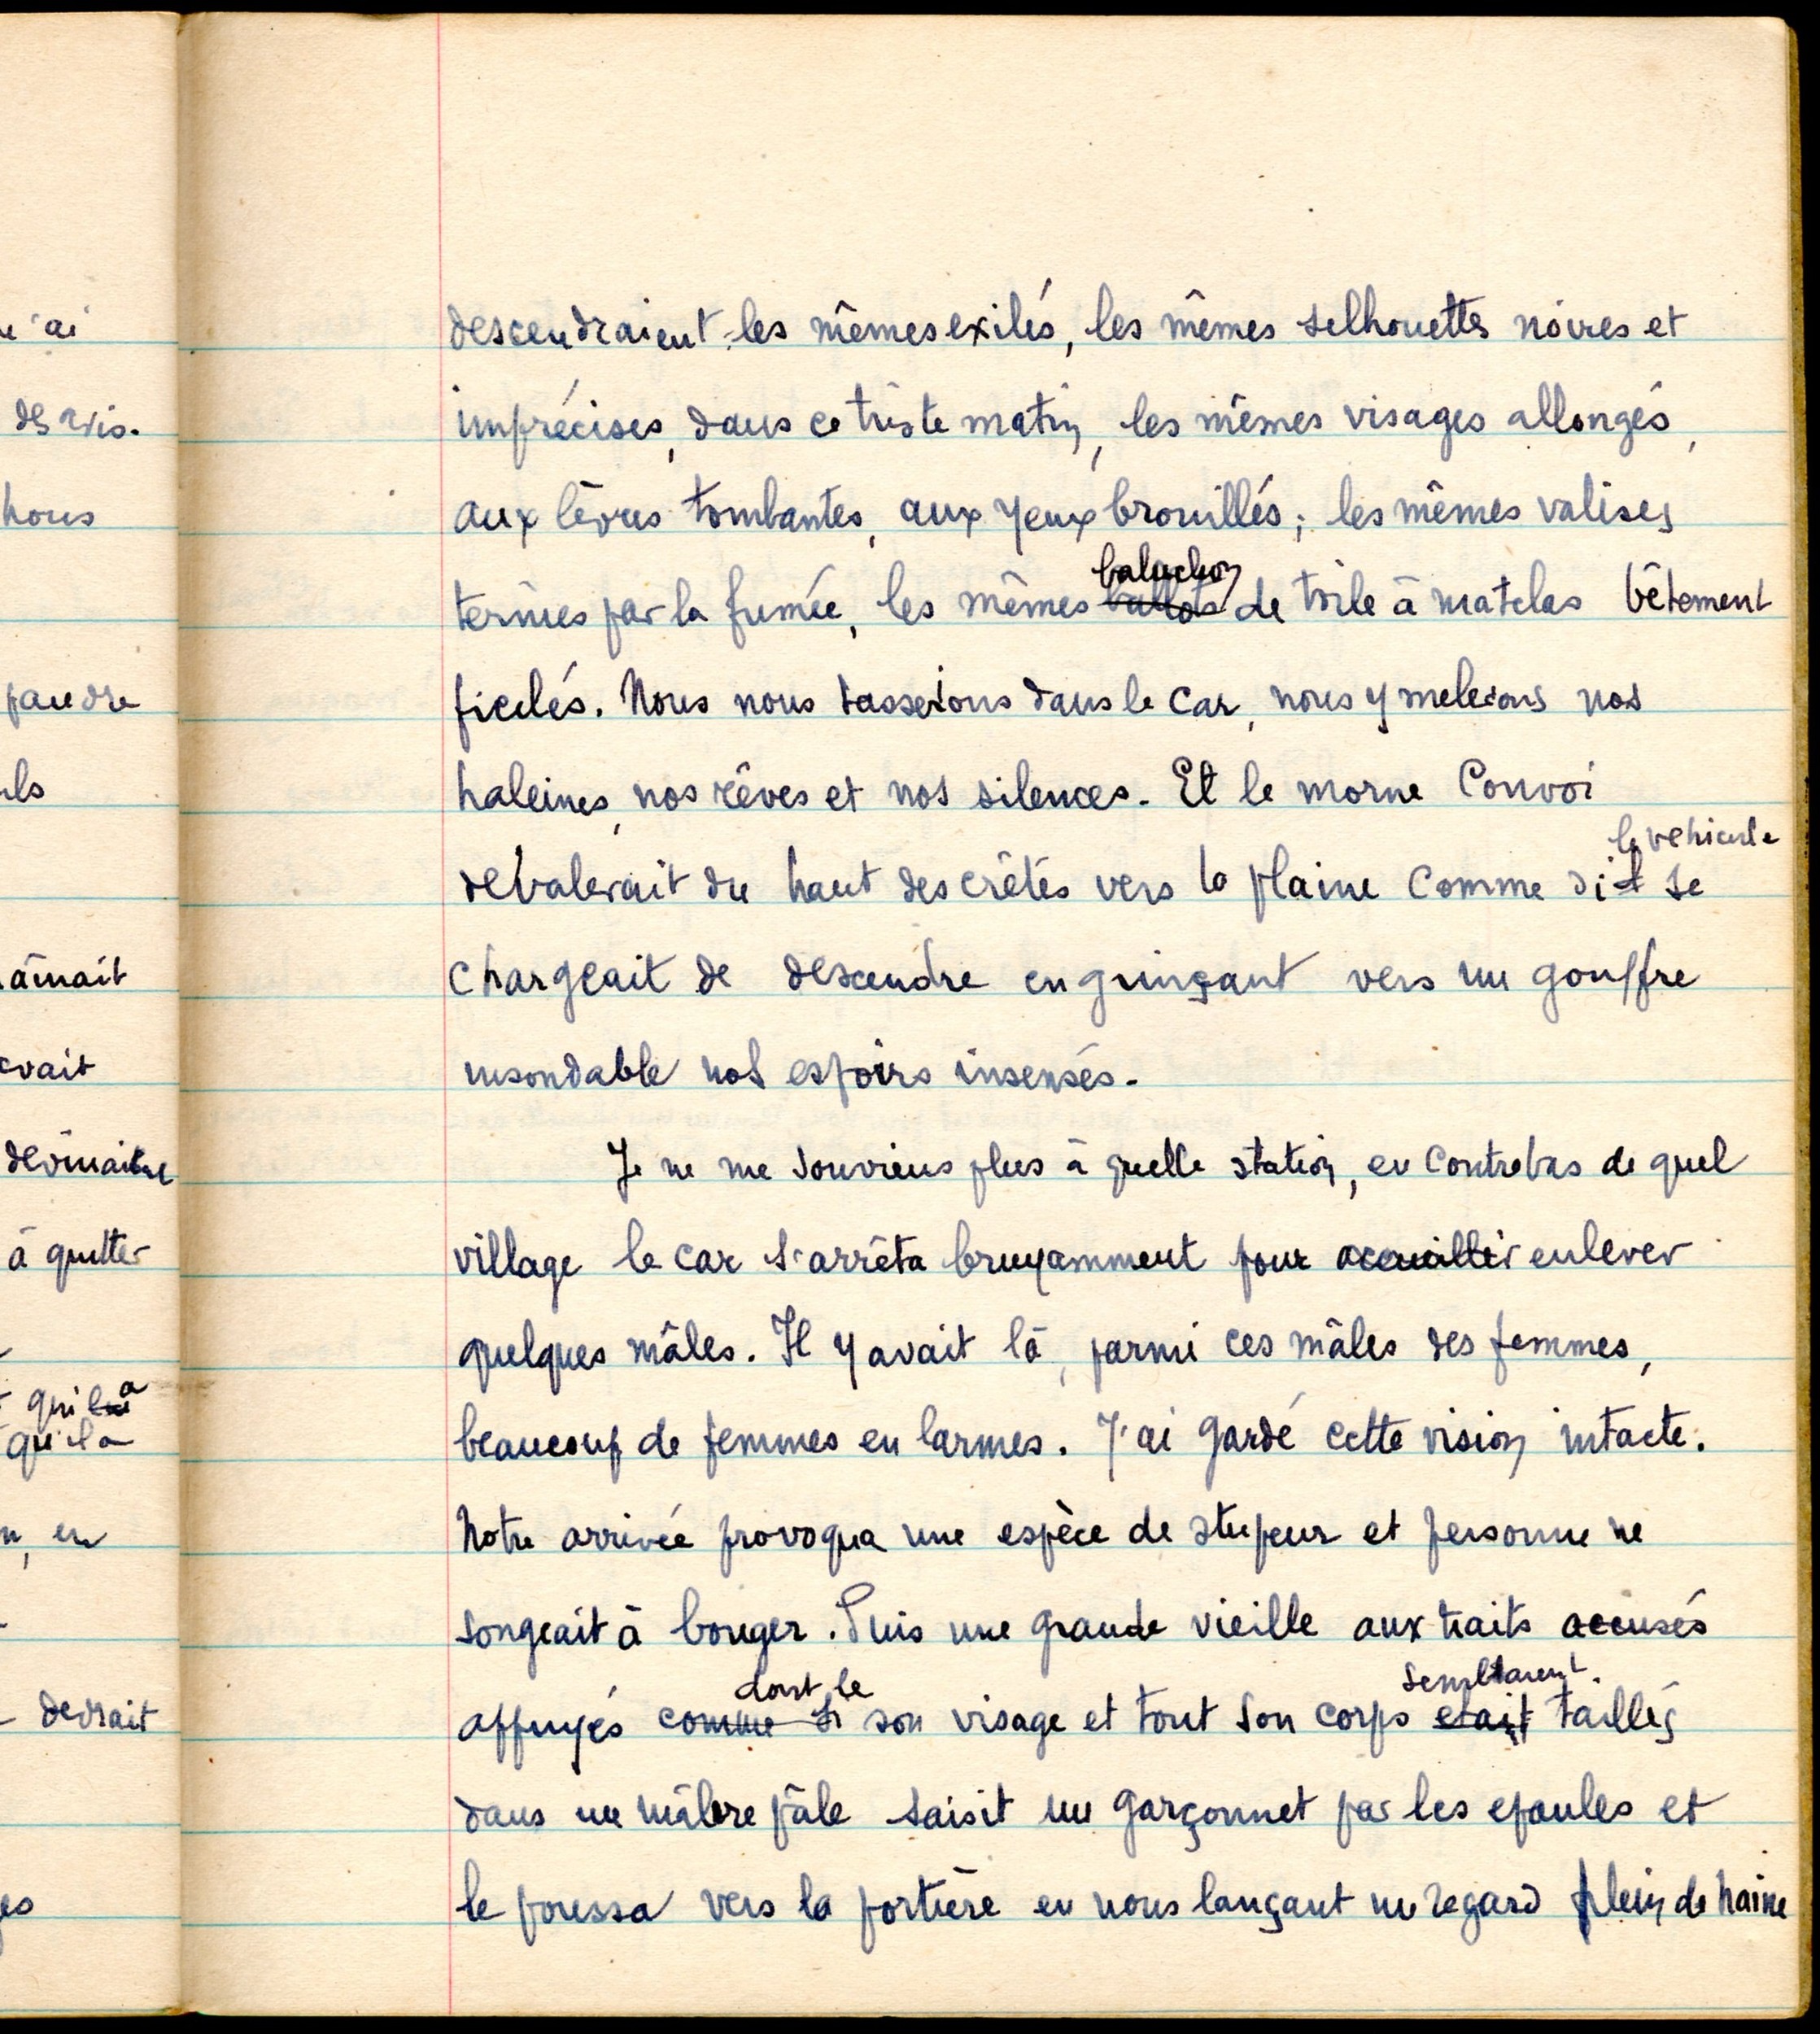 e j'ai
des vis.
nous
pandre
ls
amait
evait
devinaient
à quitter
qui lui a
qu'il a
n, en
devrait
es
descendraient les mêmes exilés, les mêmes silhouettes noires et
imprécises, dans ce triste matin, les mêmes visages allongés,
aux lèvres tombantes, aux yeux brouillés; les mêmes valises
baluchon
ternies par la fumée, les mêmes ballots de toile à matelas bêtement
ficelés. Nous nous tasserions dans le car, nous y melerions nos
haleines, nos rêves et nos silences. Et le morne Convoi
le vehicule
devalerait du haut des crêtes vers la plaine Comme si il se
chargeait de descendre en grinçant vers un gouffre
insondable nos espoirs insensés.
Je ne me souviens plus à quelle station, en Contrebas de quel
village le car s'arrêta bruyamment pour accueillir enlever
quelques mâles. Il y avait là, parmi ces mâles des femmes,
beaucoup de femmes en larmes. J'ai gardé cette vision intacte.
Notre arrivée provoqua une espèce de stupeur et personne ne
songeait à bouger. Puis une grande vieille aux traits accusés
dont le semblaient
appuyés comme si son visage et tout son corps etait taillés
dans un mâbre pâle saisit un garçonnet par les epaules et
le poussa vers la portière en nous lançant un regard plein de haine